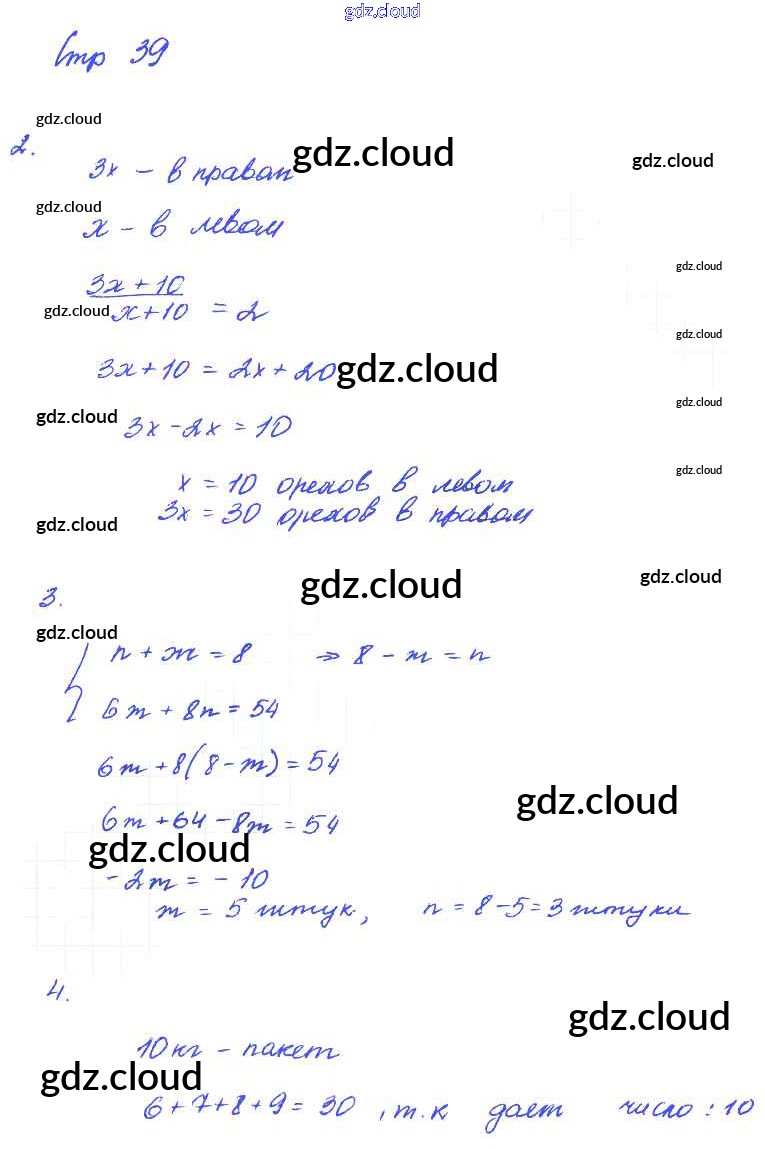 gdz.cloud
Стр 39
gdz.cloud
2.
3x - в правом gdz.cloud gdz.cloud
gdz.cloud
x - в левом
3x + 10 gdz.cloud
gdz.cloud x+10 = 2
gdz.cloud
3x + 10 = 2x + 20 gdz.cloud
gdz.cloud 3x - 2x = 10 gdz.cloud
gdz.cloud
x = 10 орехов в левом
3x = 30 орехов в правом
gdz.cloud
3. gdz.cloud gdz.cloud
gdz.cloud
{ n + m = 8 ⇒ 8 - m = n
6m + 8n = 54
6m + 8(8 - m) = 54
gdz.cloud
6m + 64 - 8m = 54
gdz.cloud
-2m = -10
m = 5 штук, n = 8 - 5 = 3 штуки
4.
gdz.cloud
10 кг - пакет
gdz.cloud
6 + 7 + 8 + 9 = 30 , т.к дает число : 10